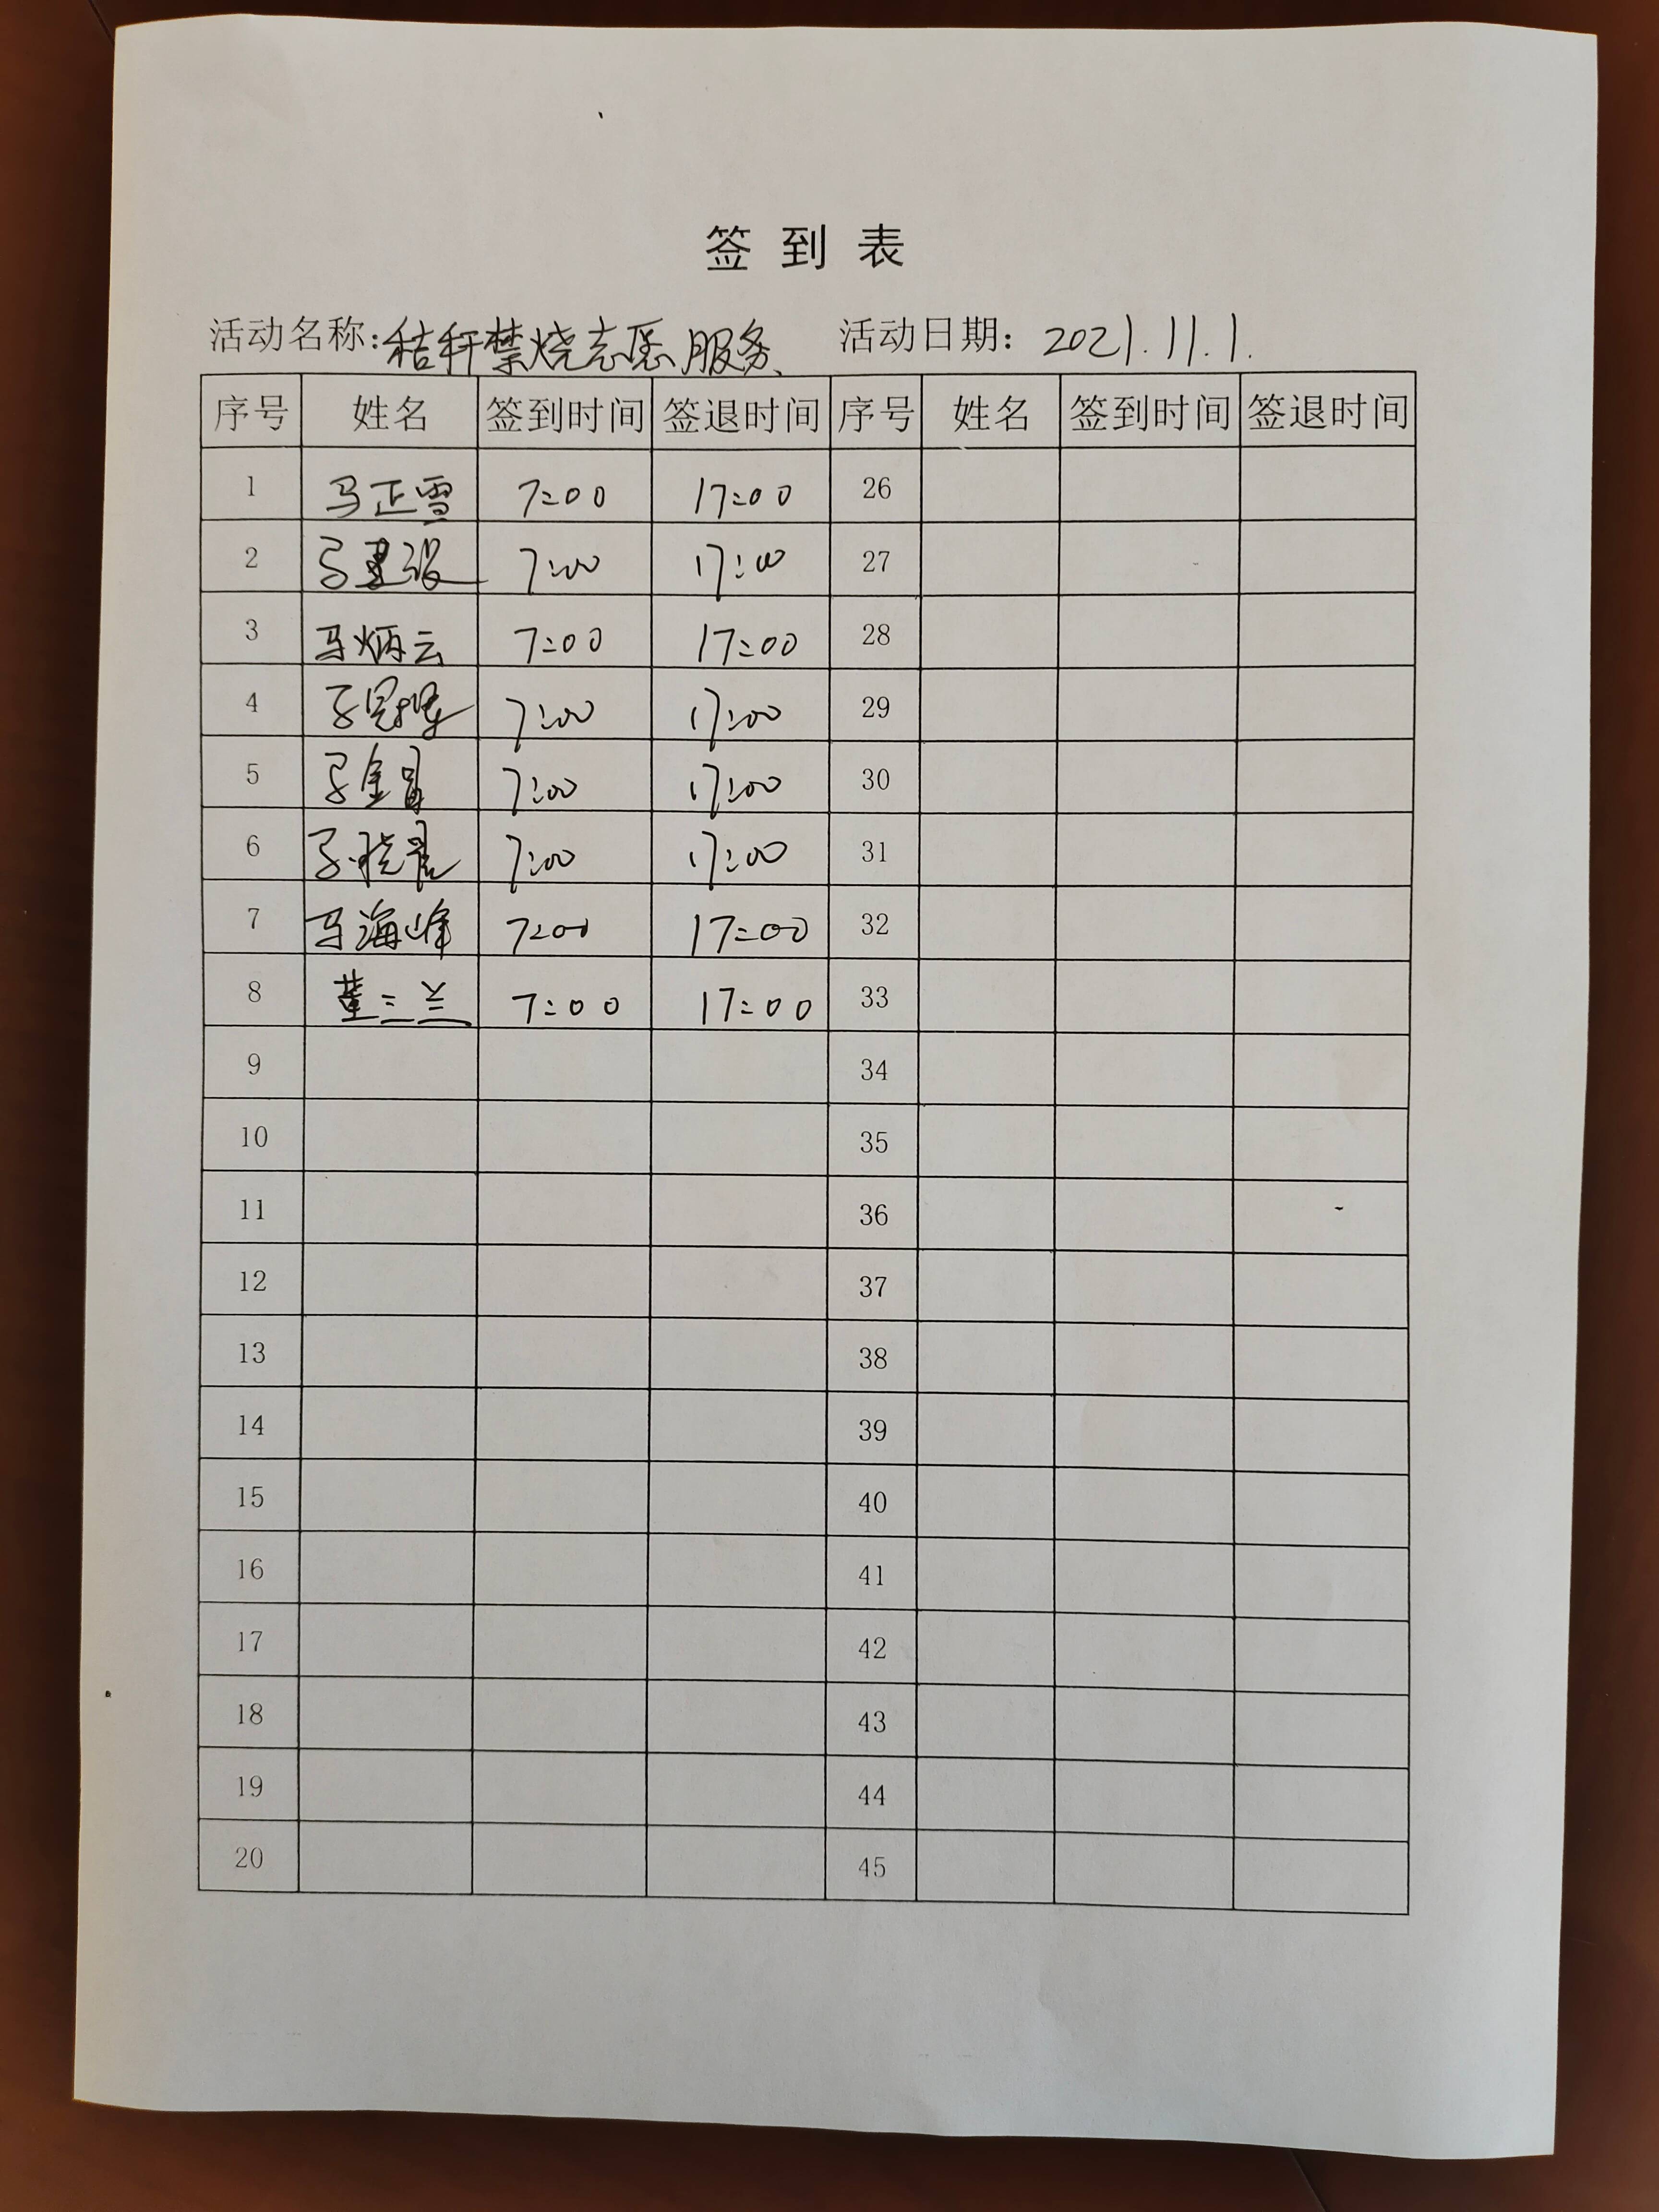 签到表
活动名称:秸秆禁烧志愿服务 活动日期: 2021.11.1.
序号 姓名 签到时间 签退时间 序号 姓名 签到时间 签退时间
1 马正雪 7:00 17:00 26
2 马建设 7:00 17:00 27
3 马炳云 7:00 17:00 28
4 7:00 17:00 29
5 马金富 7:00 17:00 30
6 马晓君 7:00 17:00 31
7 马海峰 7:00 17:00 32
8 董二兰 7:00 17:00 33
9 34
10 35
11 36
12 37
13 38
14 39
15 40
16 41
17 42
18 43
19 44
20 45